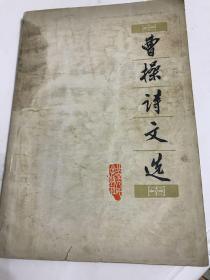 曹操诗文选